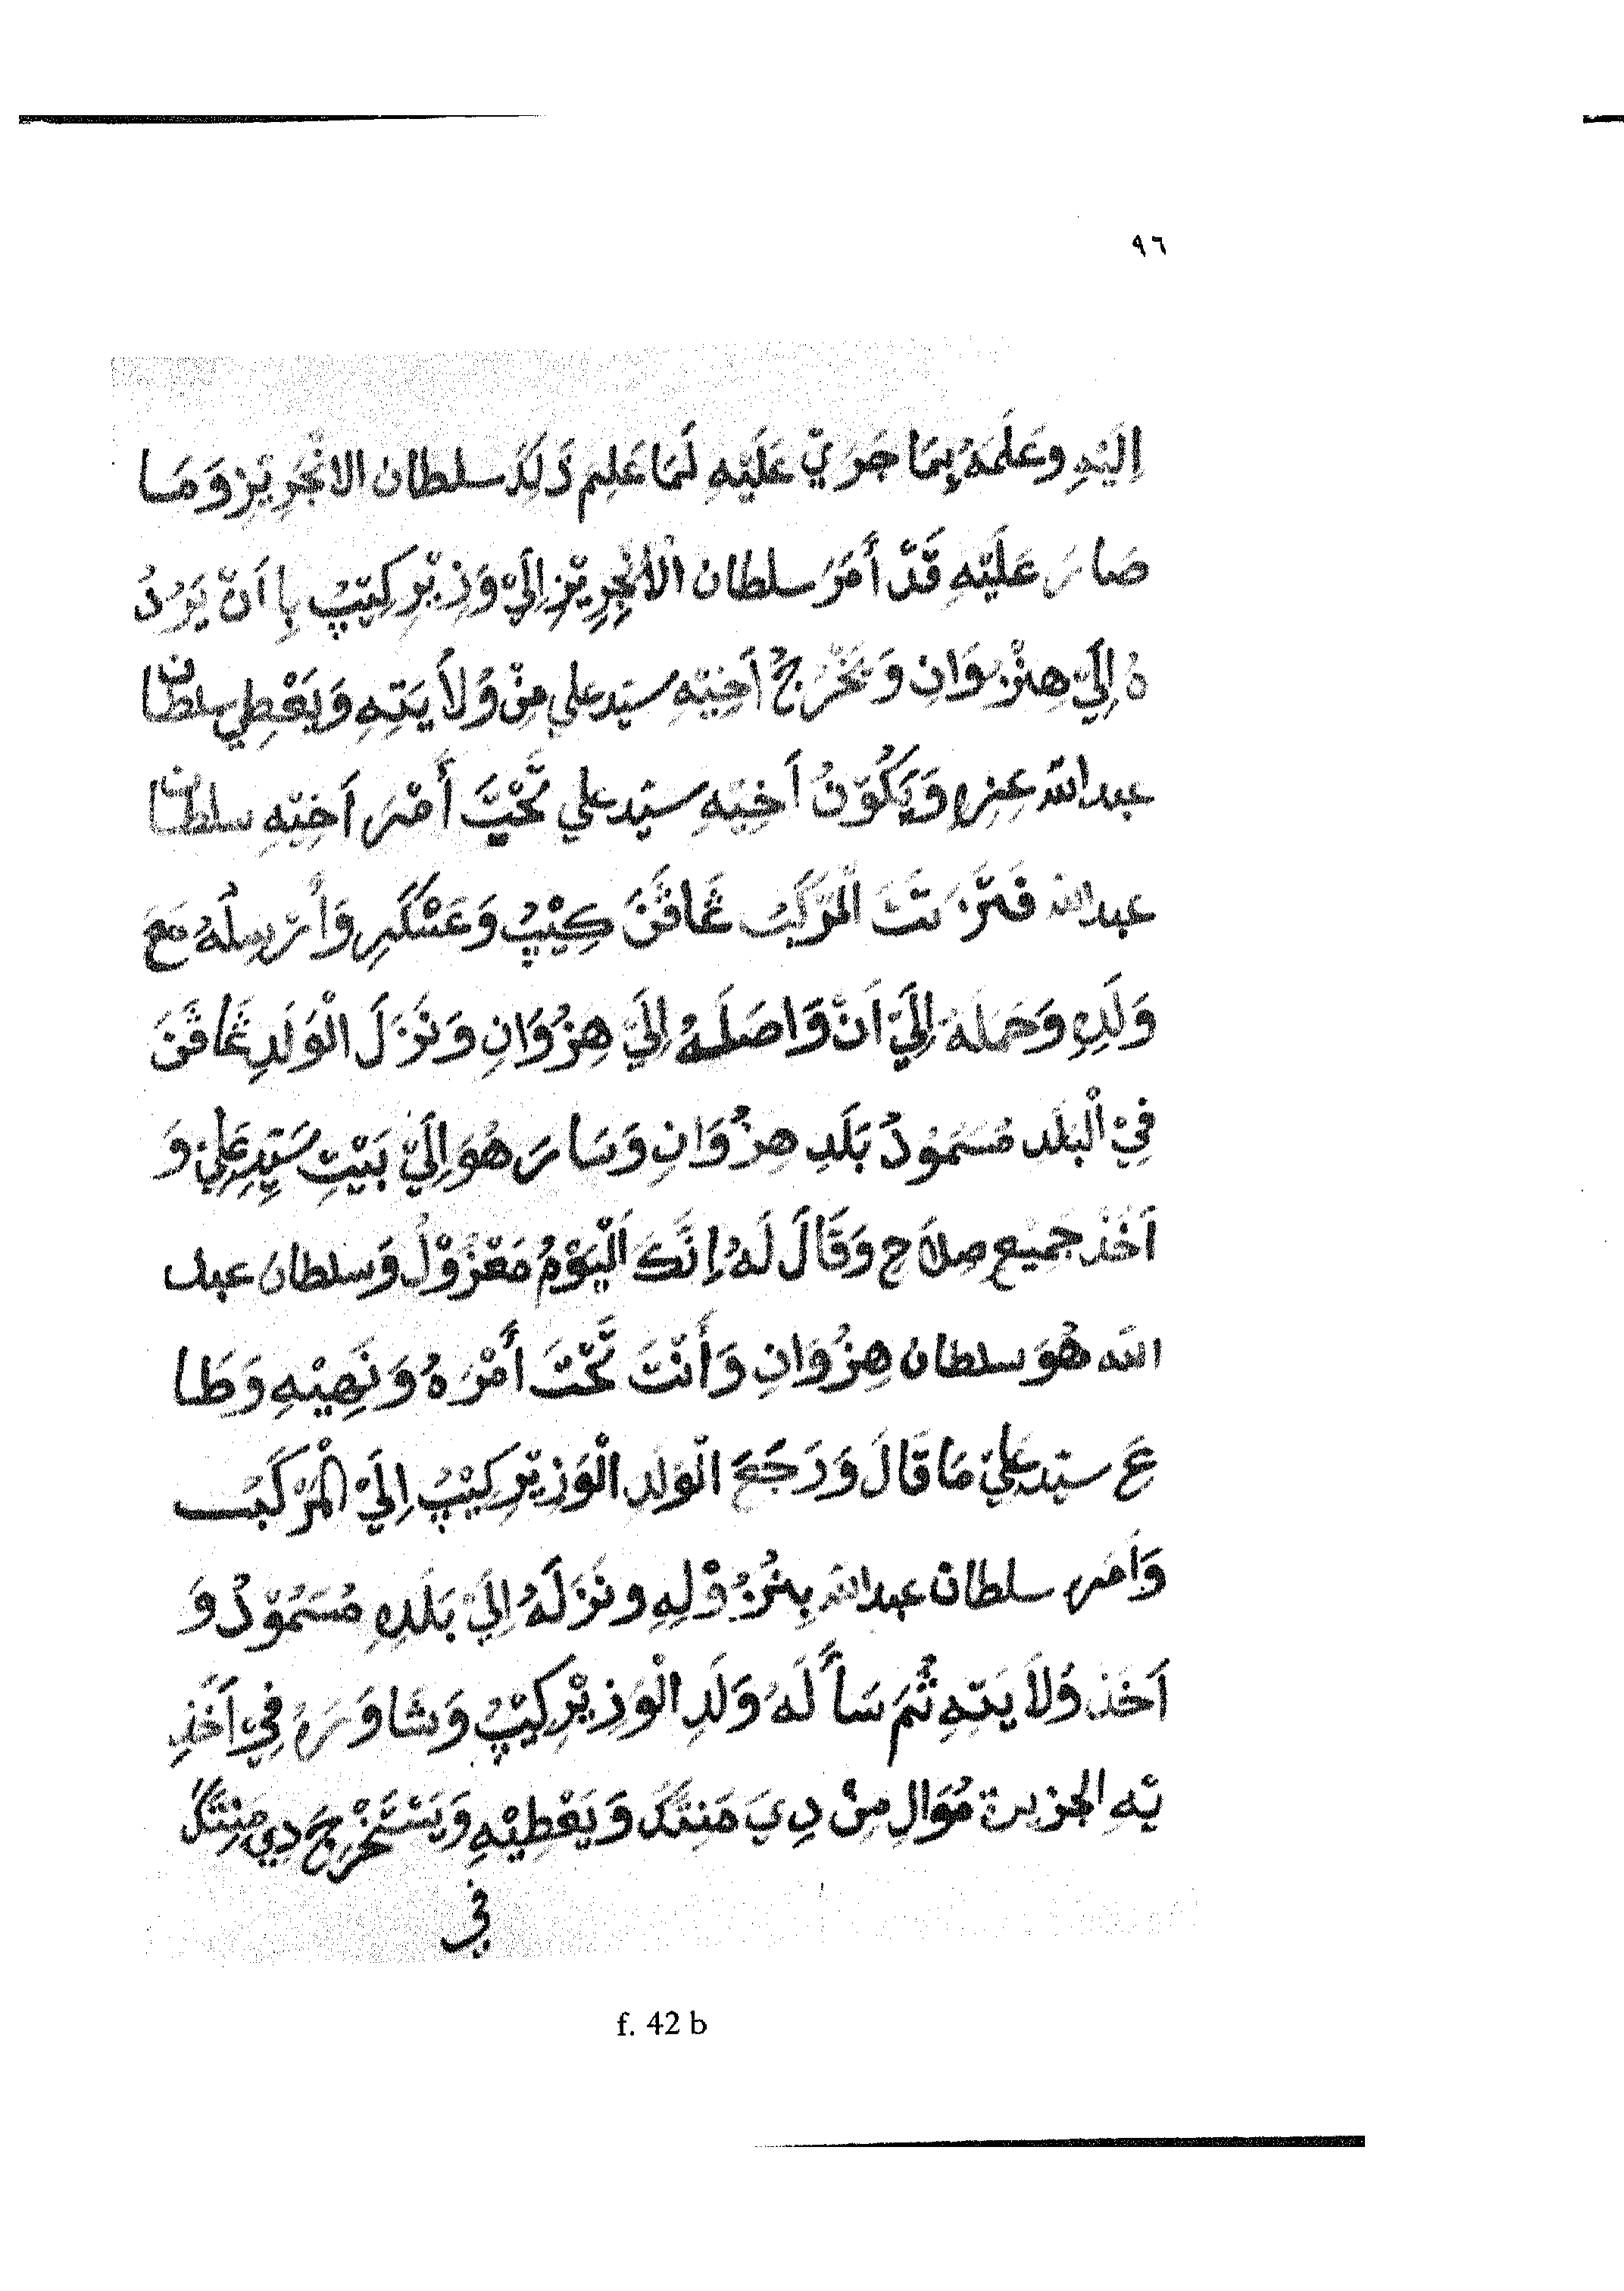 ٩٦
اِلَيْهِ وعَلَمَهُ بِمَا جَرَيّ عَلَيْهِ لَمَا عَلِم ذَلِكَ سلطان الانْجَرِيْزِ وَمَا
صَارَ عَلَيْهِ قَدْ أَمَرَ سلطان الْاَنْجِرِيْزِ اِلَيْ وَزِيْرِ كِتِيْپُ بِا اَنْ يَرُدُ
هُ اِلَيّ هِنْزُوَانِ وَيَخْرُجُ اَخِيْهِ سيّد علي مِنْ وَلاَيَتِهِ وَيَعْطِي سلطان
عبدالله عِزِهِ وَيَكُوْنُ اَخِيْهِ سيّد علي تَحْتَ أَمْرِ اَخِيْهِ سلطان
عبدالله فَتَزَتَتَ الْمَرْكَبُ غَافَنَ كِيْپُ وَعَسْكَرِ وَأَرْسِلُهُ مَعَ
وَلَدِهِ وَحَمَلَهُ اِلَيّ اَنْ وَاصَلَهُ اِلَيّ هِنْزُوَانِ وَنَزَلَ الْوَلَدِ غَافَنَ
فِيْ الْبَلَد مُسَمُوْدُ بَلَدِ هِنْزُوَانِ وَسَارَ هُوَ اِلَيّ بَيْتِ سَيّدِ عَلِيْ وَ
اَخَذَ جَمِيْعِ صِلاَحِ وَقَالَ لَهُ اِنَّكَ اَلْيَوْمُ مَعْزُوْلُ وَسلطان عبد
الله هُوَ سلطان هِنْزُوَانِ وَأَنْتَ تَحْتَ أَمْرَهُ وَنَهِيْهِ وَطَا
عَ سيّد عَلِيْ مَا قَالَ وَرَجَعَ الْوَلَدِ الْوَزِيْرِ كِيْپُ اِلَيْ الْمَرْكَبُ
وَاَمَرَ سلطان عبدالله بِنُزُوْلِهِ ونَزَلَهُ اِلَيّ بَلَدِهِ مُسَمُوْدُ وَ
اَخَذَ وَلاَيَتِهِ ثُمَ سَأَلَهُ وَلَدِ الْوَزِيْرِ كِيْپُ وَشَاوَرَهُ فِيْ اَخَذِ
يْهِ الجزيرة مُوَالِ مِنْ دِيَ مَنِتَكَ وَيَعْطِيْهِ وَيَسْتَخْرِجَ دِي مَنِتَكَ
في
f. 42 b